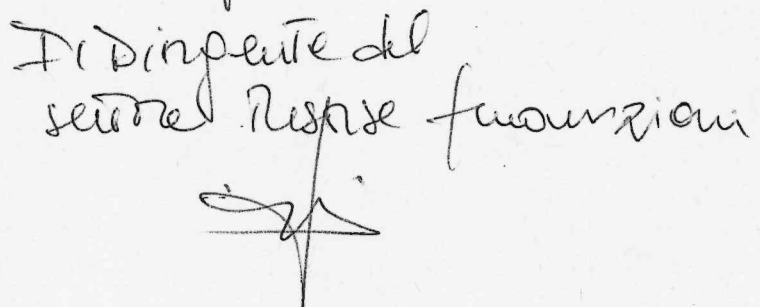 Il Dirigente del
settore Risorse finanziarie